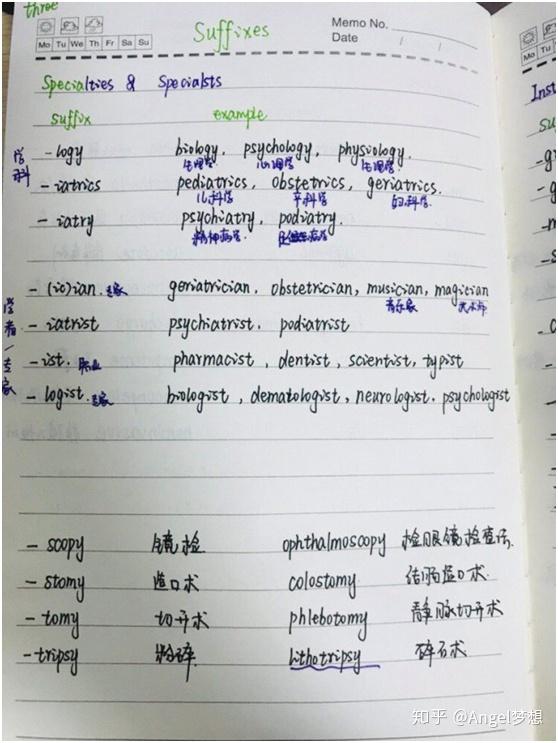 three
Suffixes
Memo No.
Mo Tu We Th Fr Sa Su
Date / /
Specialties & Specialsts
suffix example
学科
-logy biology, psychology, physiology.
生理学 心理学 生理学
-iatrics pediatrics, obstetrics, geriatrics.
儿科学 产科学 妇科学
-iatry psychiatry, podiatry
精神病学 足病学
学者/专家
-(ic)ian. 专家 geriatrician, obstetrician, musician, magician
音乐家 魔术师
-iatrist psychiatrist, podiatrist
-ist. 职业 pharmacist, dentist, scientist, typist
-logist. 专家 biologist, dematologist, neurologist, psychologist
-scopy 镜检 ophthalmoscopy 检眼镜检查法.
-stomy 造口术 colostomy 结肠造口术.
-tomy 切开术 phlebotomy 静脉切开术
-tripsy 粉碎 lithotripsy 碎石术
Mo
Inst
su
知乎 @Angel梦想